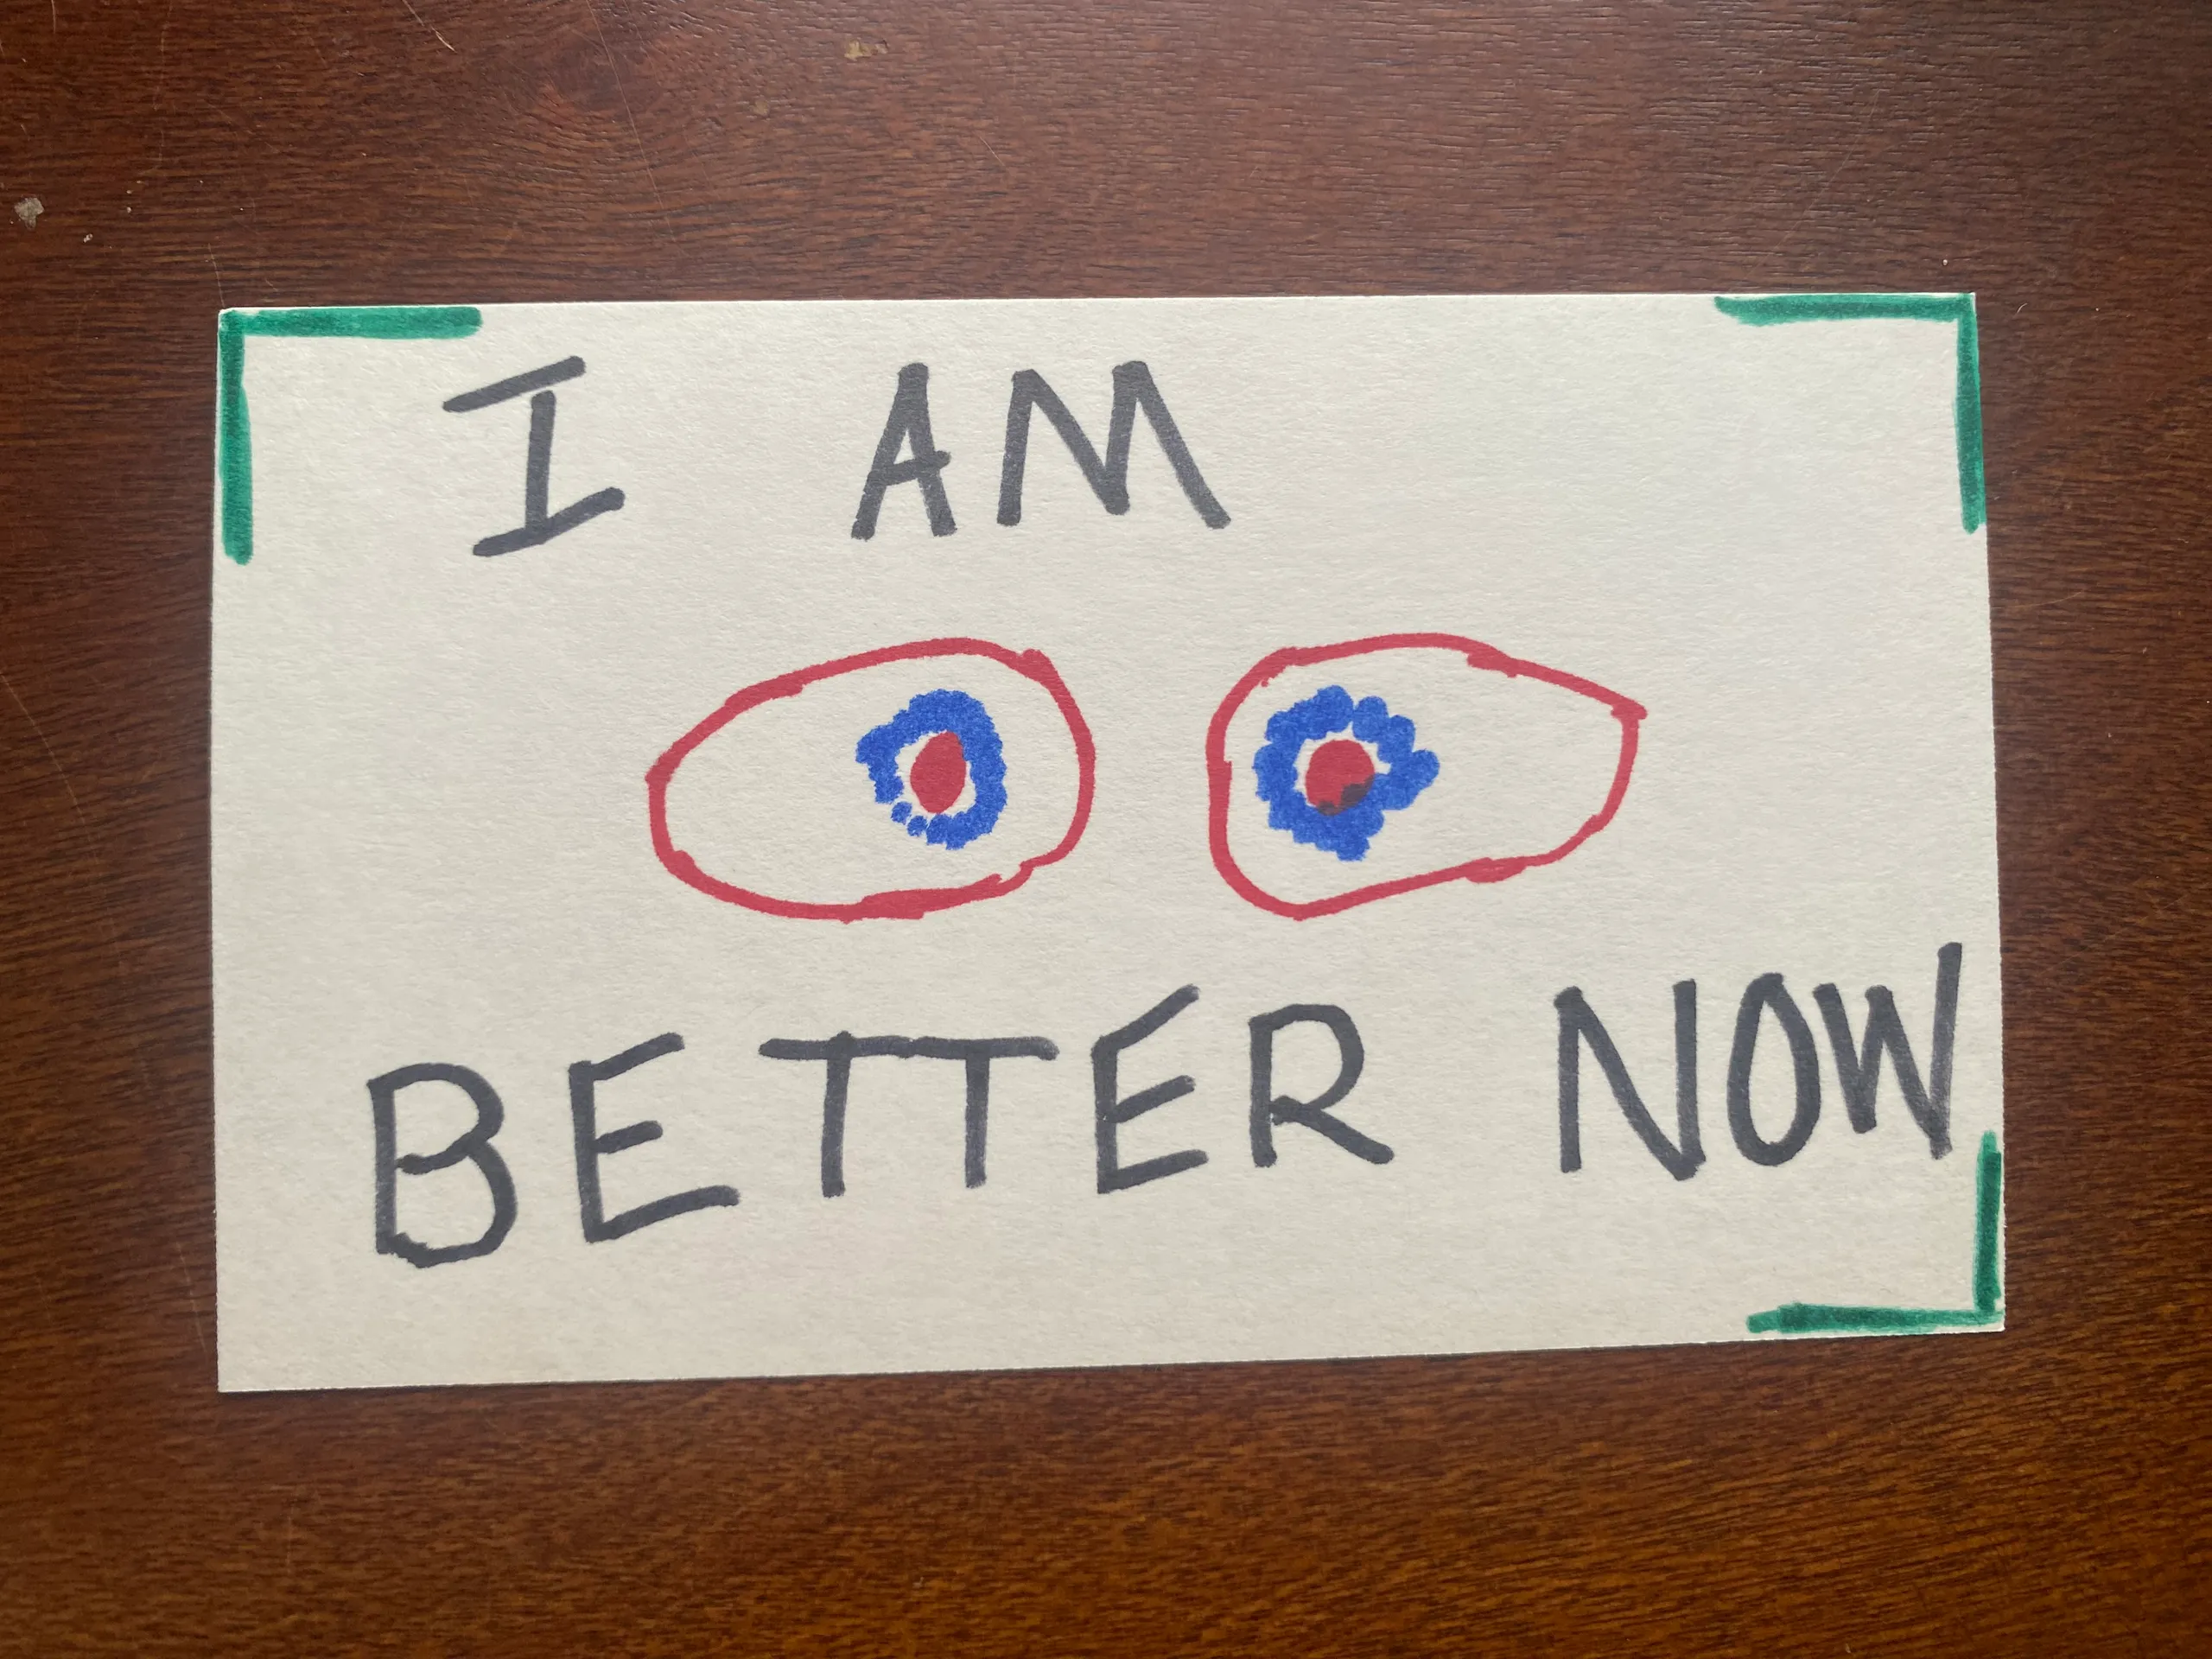 I AM
BETTER NOW